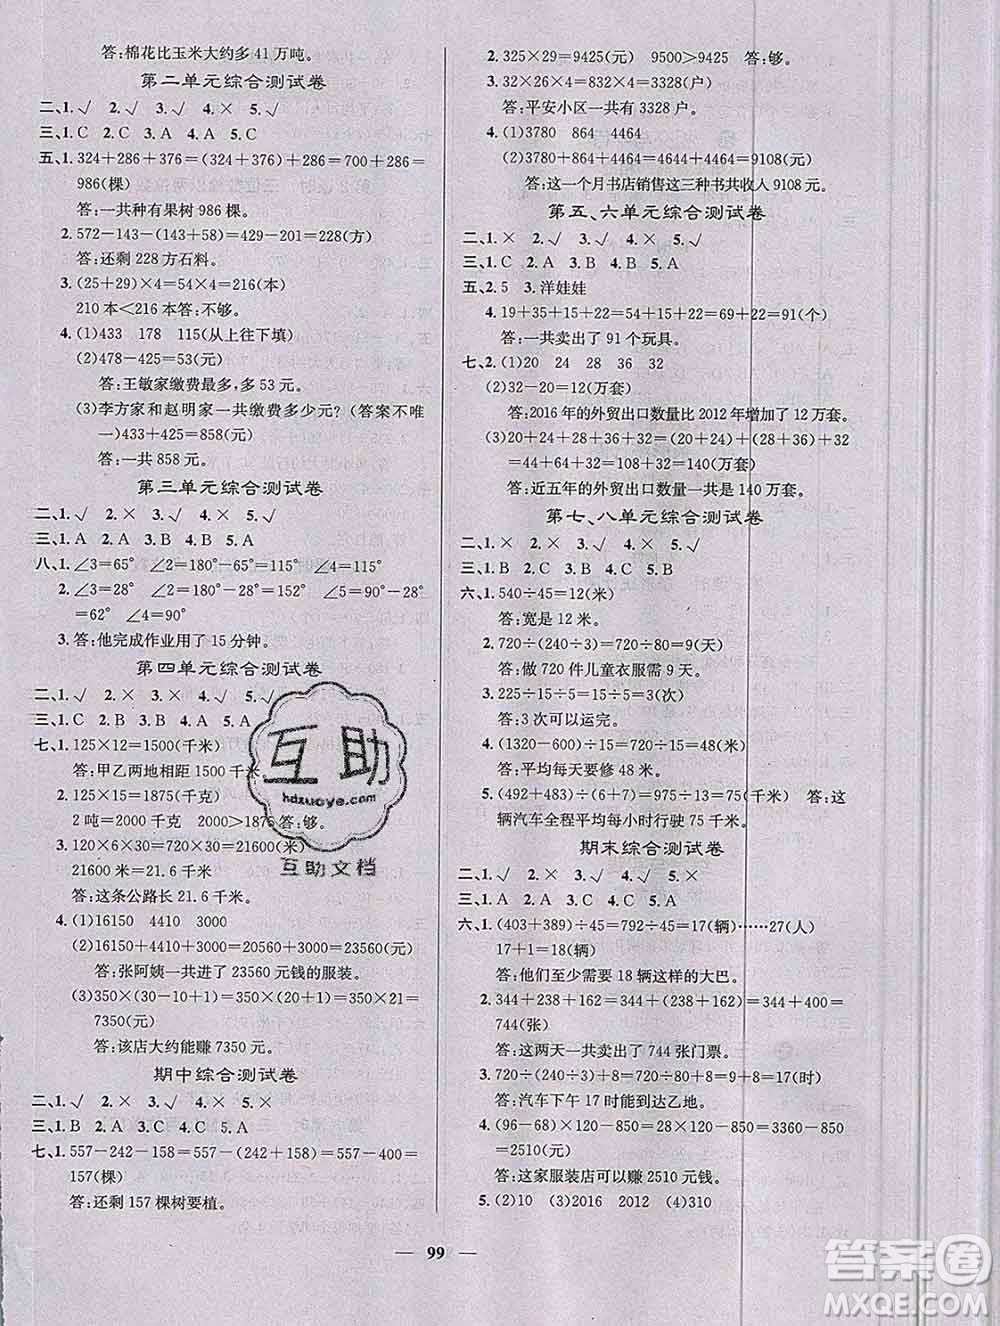 答:棉花比玉米大约多 41 万吨。
第二单元综合测试卷
二、1.√ 2.√ 3.√ 4.× 5.√
三、1.C 2.C 3.A 4.A 5.A
五、1.324+286+376=(324+376)+286=700+286=
986(棵)
答:一共种有果树 986 棵。
2.572-143-(143+58)=429-201=228(方)
答:还剩 228 方石料。
3.(25+29)×4=54×4=216(本)
210 本<216 本答:不够。
4.(1)433 178 115(从上往下填)
(2)478-425=53(元)
答:王敏家缴费最多,多 53 元。
(3)李方家和赵明家一共缴费多少元?(答案不唯
一)433+425=858(元)
答:一共 858 元。
第三单元综合测试卷
二、1.√ 2.× 3.√ 4.× 5.√
三、1.A 2.A 3.A 4.B 5.A
八、1.∠3=65° ∠2=65° ∠4=115°
2.∠3=28° ∠4=90° ∠5=∠180°-90°-28°
=62° ∠2=∠5=62°
3.答:他完成作业用了 15 分钟。
第四单元综合测试卷
二、1.√ 2.× 3.× 4.√ 5.×
三、1.C 2.B 3.B 4.A 5.A
七、1.125×12=1500(千米)
答:甲乙两地相距 1500 千米。
2.125×15=1875(千克)
2 吨=2000 千克 2000>1875 答:够。
3.120×6×30=720×30=21600(米)
21600 米=21.6 千米
答:这条公路长 21.6 千米。
4.(1)16150 4410 3000
(2)16150+4410+3000=20560+3000=23560(元)
答:张阿姨一共进了 23560 元钱的服装。
(3)350×(9+7+5)=350×(16+5)=350×21=
7350(元)
答:该店大约能赚 7350 元。
期中综合测试卷
二、1.√ 2.× 3.√ 4.× 5.×
三、1.B 2.A 3.B 4.C 5.A
七、1.557-242-158=557-(242+158)=557-400=
157(棵)
答:还剩 157 棵树要植。
2.325×29=9425(元) 9500>9425 答:够。
3.32×26×4=832×4=3328(户)
答:平安小区一共有 3328 户。
4.(1)3780 864 4464
(2)3780+864+4464=4644+4464=9108(元)
答:这一个月书店销售这三种书共收入 9108 元。
第五、六单元综合测试卷
二、1.× 2.√ 3.√ 4.× 5.×
三、1.C 2.A 3.B 4.B 5.A
五、2.5 3.洋娃娃
4.19+35+15+22=54+15+22=69+22=91(个)
答:一共卖出了 91 个玩具。
七、2.(1)20 24 28 36 32
(2)32-20=12(万套)
答:2016 年的外贸出口数量比 2012 年增加了 12 万套。
(3)20+24+28+36+32=(20+24+36)+28+32
=80+28+32=108+32=140(万套)
答:近五年的外贸出口数量一共是 140 万套。
第七、八单元综合测试卷
二、1.× 2.× 3.√ 4.× 5.√
三、1.B 2.B 3.C 4.B 5.A
六、1.540÷45=12(米)
答:宽是 12 米。
2.720÷(240÷3)=720÷80=9(天)
答:做 720 件儿童衣服需 9 天。
3.225÷15÷5=15÷5=3(次)
答:3 次可以运完。
4.(1320-600)÷15=720÷15=48(米)
答:平均每天要修 48 米。
5.(492+483)÷(6+7)=975÷13=75(千米) 答:这
辆汽车全程平均每小时行驶 75 千米。
期末综合测试卷
二、1.× 2.× 3.√ 4.√ 5.×
三、1.A 2.C 3.A 4.B 5.A
六、1.(403+389)÷45=792÷45=17(辆)……27(人)
17+1=18(辆)
答:他们至少需要 18 辆这样的大巴。
2.344+238+162=344+(238+162)=344+400=
744(张)
答:这两天一共卖出了 744 张门票。
3.720÷(240÷3)+8=720÷80+8=9+8=17(时)
答:汽车下午 17 时能到达乙地。
4.(96-68)×(50+40)=(96-68)×90=28×90
=2510(元)
答:这家服装店可以赚 2510 元钱。
5.(2)10 (3)2016 2012 (4)310
— 99 —
互助
hdzuoye.com
互助文档
答案圈
MXQE.COM